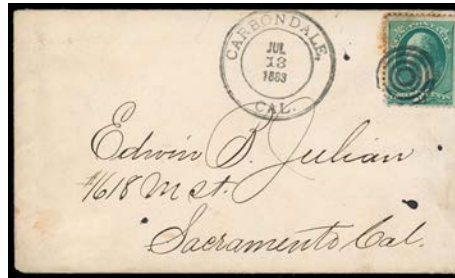 CARBONDALE,
JUL
13
1883
CAL.
Edwin B. Julian
#1618 M st.
Sacramento Cal.